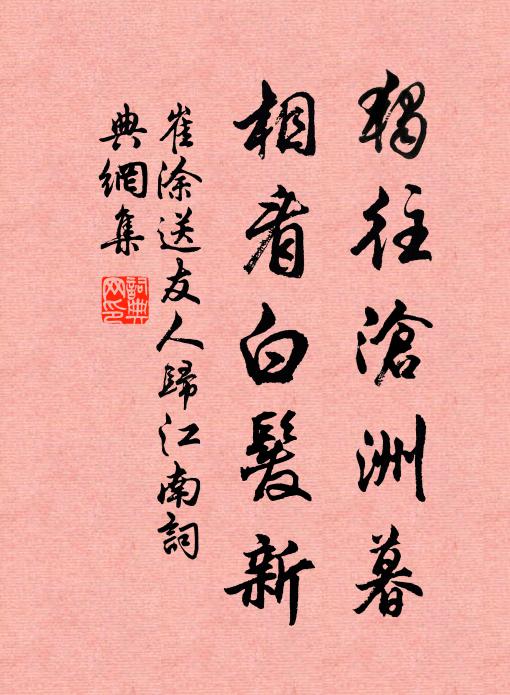 獨往滄洲暮
相看白髮新
崔涂送友人歸江南詞
典網集
詞典
网印